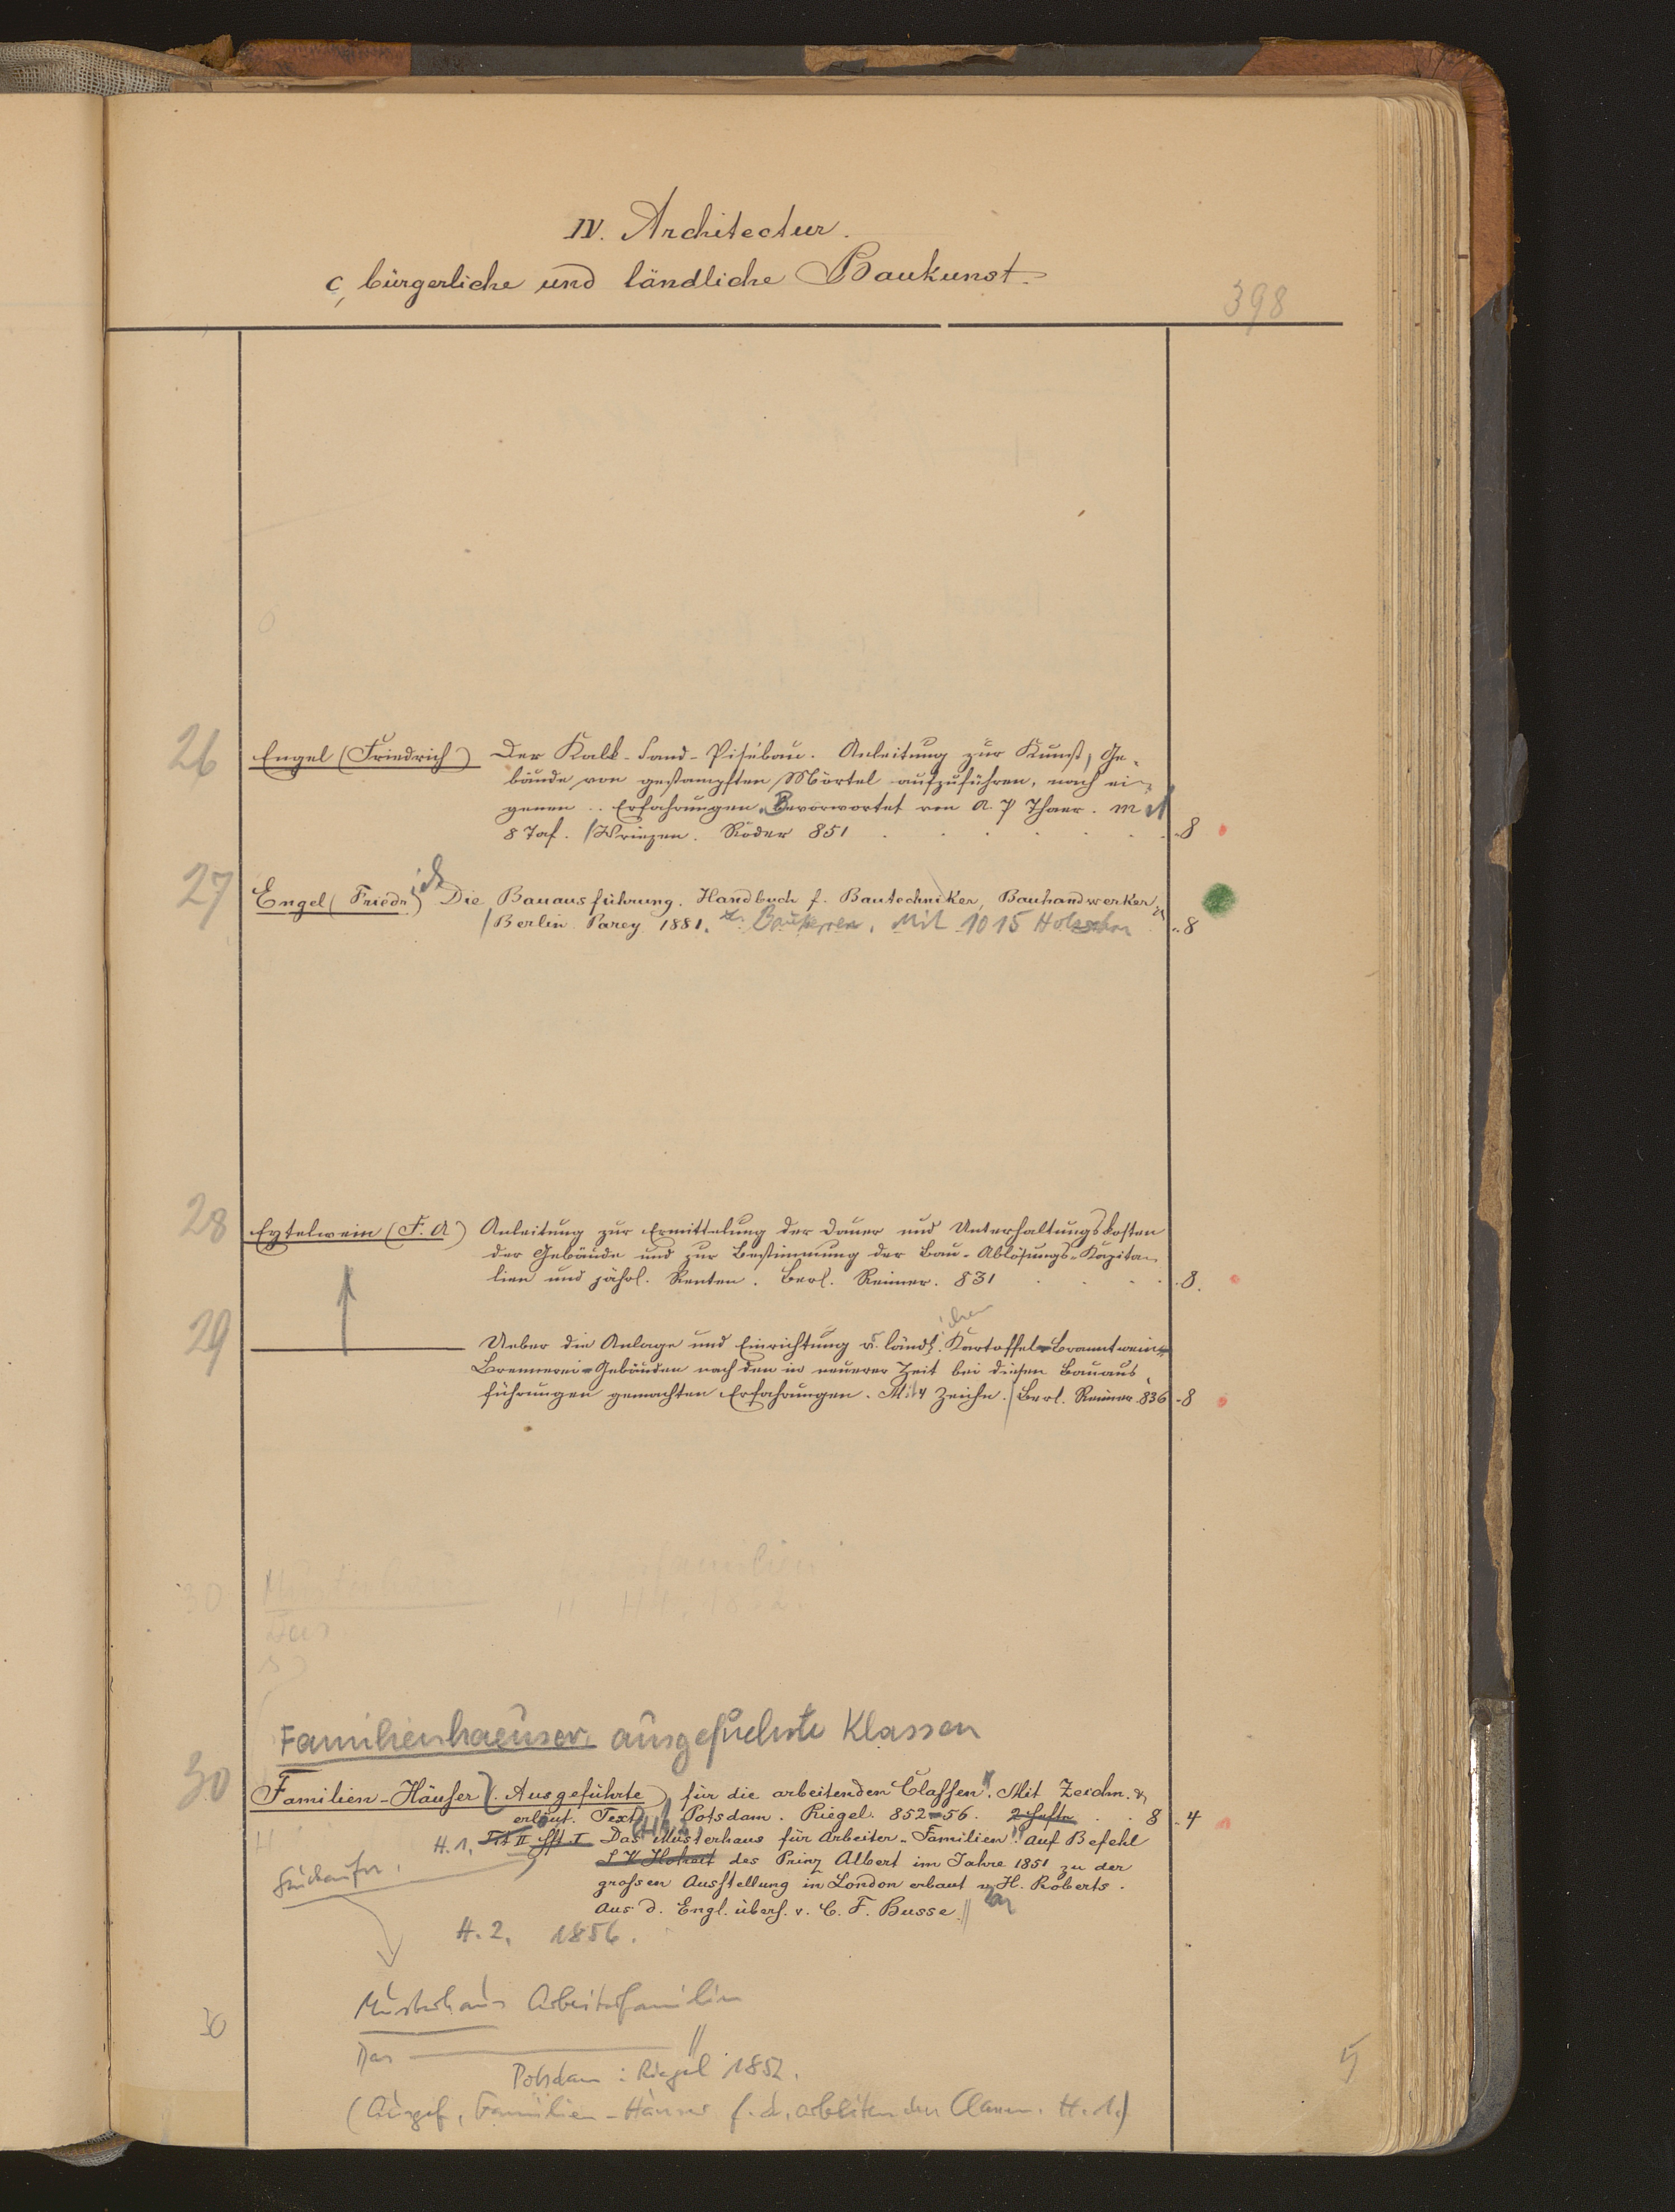 IV. Architectur.
c, bürgerliche und ländliche Baukunst.
398
26 Engel (Friedrich) Der Kalk-Sand-Pisébau. Anleitung zur Kunst, Ge-
bäude von gestampften Mörtel aufzuführen, nach ei-
genen .. Erfahrungen. Bevorwortet von A. P Thaer. M
8 Taf. / Wriezen. Röder 851 . . . . . 8
27 Engel (Friedrich) Die Bauausführung. Handbuch f. Bautechniker, Bauhandwerker
/ Berlin Parey 1881. u. Bauherren. Mit 1015 Holzschn 8
28 Eytelwein (F. A) Anleitung zur Ermittelung der Dauer und Unterhaltungskosten
der Gebäude und zur Bestimmung der Bau-Ablösungs-Kapita-
lien und jährl. Renten. Berl. Reimer. 831 . . . . 8.
29 ——— Ueber die Anlage und Einrichtung v. ländl.ichen Kartoffel-Branntwein-
Brennerei-Gebäuden nach den in neuerer Zeit bei diesen Bauaus-
führungen gemachten Erfahrungen. Mit 4 Zeichn. / Berl. Reimer. 836 8
30
Das
Familienhaeuser, ausgefuehrte Klassen
30 Familien-Häuser (. Ausgeführte) für die arbeitenden Classen". Mit Zeichn. &
erläut. Text / Potsdam. Riegel. 852-56. 2 Hefte . . 8 4
H. 1, Tit II Hft. I Das Musterhaus für Arbeiter-Familien". auf Befehl
S K Hoheit des Prinz Albert im Jahre 1851 zu der
grossen Ausstellung in London erbaut v. H. Roberts.
Aus d. Engl. übers. v. C. F. Busse. //
H. 2, 1856.
Musterhaus Arbeiterfamilien
30
Das ——— //
Potsdam : Riegel 1852.
(Ausgef. Familien-Häuser f. d. arbeitenden Classen. H. 1.)
5